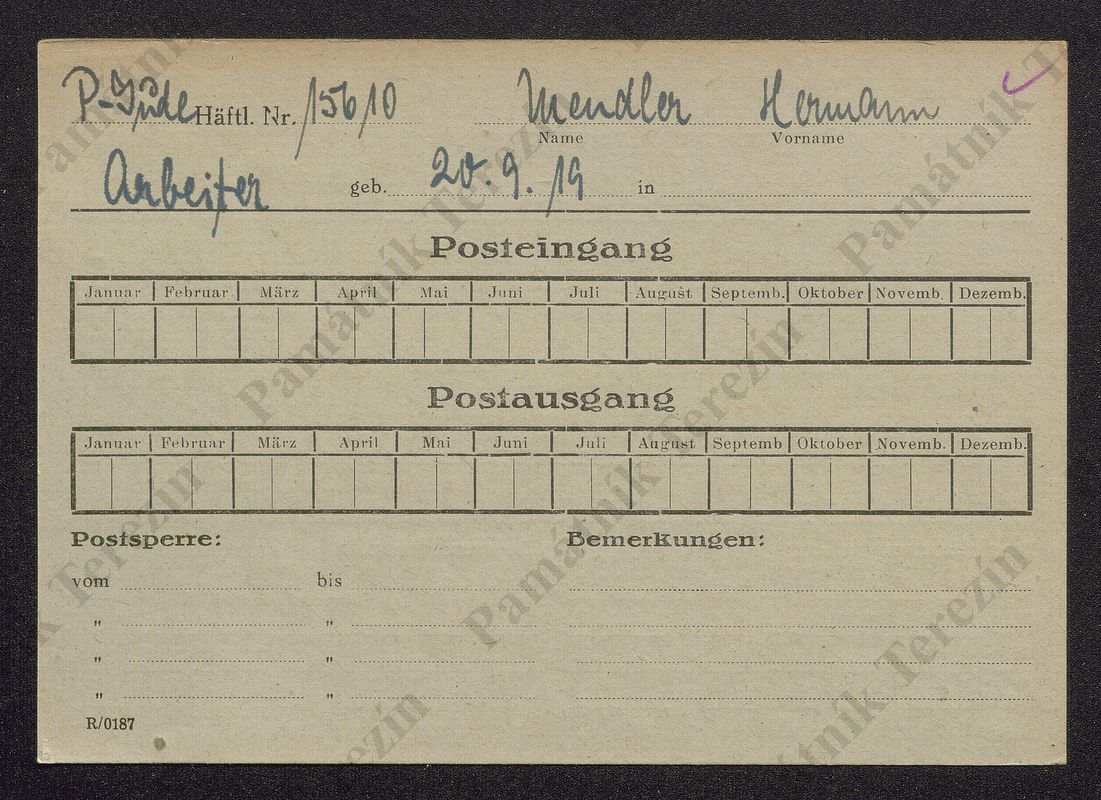 P-Jude Häftl. Nr. 15610 Mendler Hermann
Name Vorname
Arbeiter geb. 20.9.19 in
Posteingang
Januar Februar März April Mai Juni Juli August Septemb. Oktober Novemb. Dezemb.
Postausgang
Januar Februar März April Mai Juni Juli August Septemb Oktober Novemb. Dezemb.
Postsperre: Bemerkungen:
vom bis
" "
" "
" "
R/0187
Památník Terezín